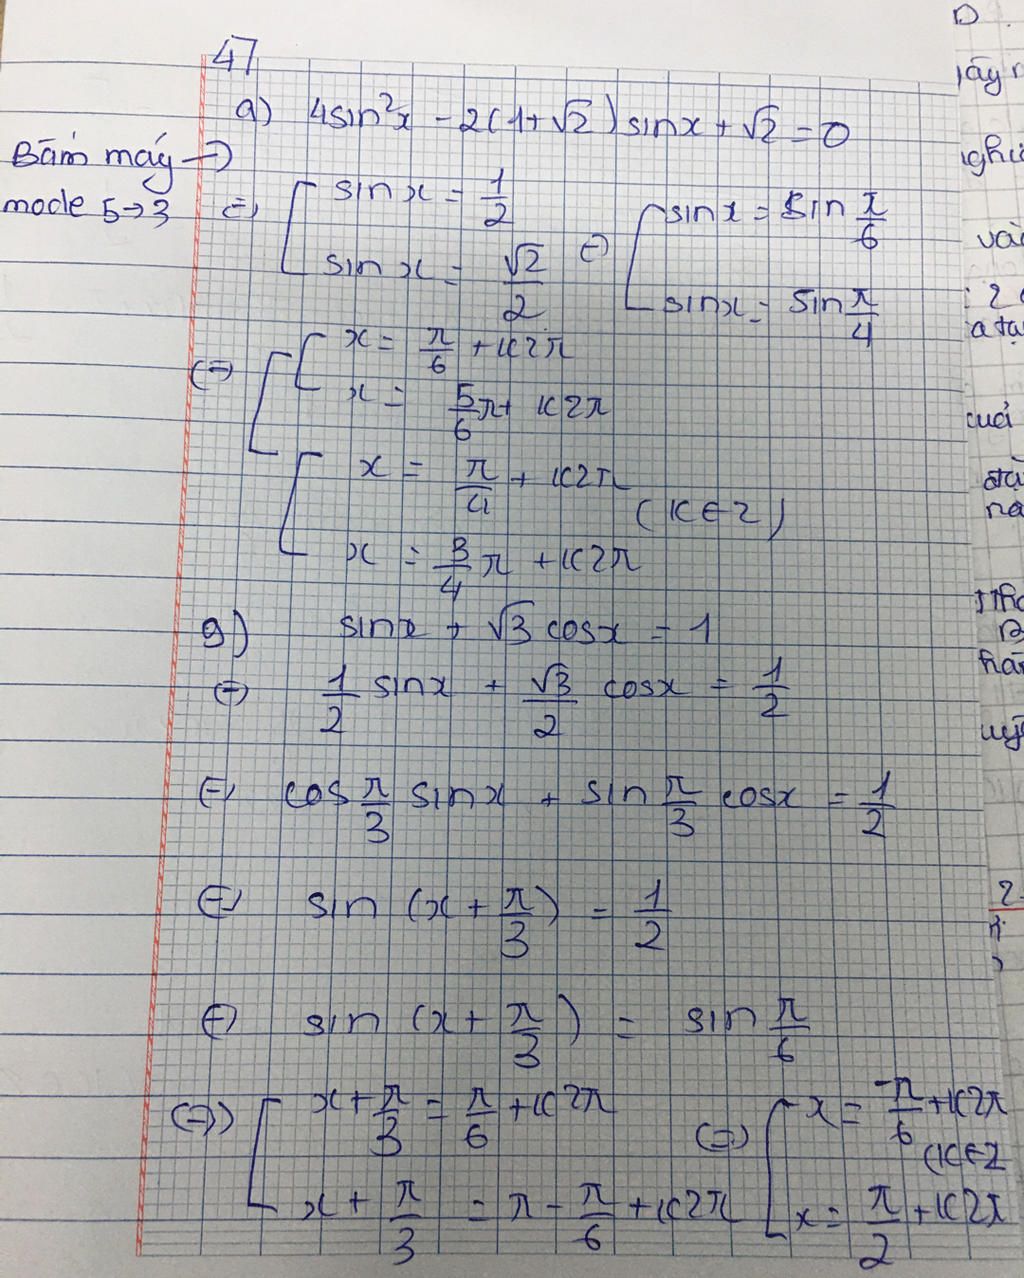 47
a) 4sin²x - 2(1+√2)sinx + √2 = 0
Bấm máy →
mode 5→3
⇔ [ sinx = 1/2 ; sinx = √2/2 ⇔ [ sinx = sin π/6 ; sinx = sin π/4
⇔ [ [ x = π/6 + k2π
x = 5/6 π + k2π
[ x = π/4 + k2π
(k∈Z)
x = 3/4 π + k2π
g) sinx + √3 cosx = 1
⇔ 1/2 sinx + √3/2 cosx = 1/2
⇔ cos π/3 sinx + sin π/3 cosx = 1/2
⇔ sin (x + π/3) = 1/2
⇔ sin (x + π/3) = sin π/6
⇔ [ x + π/3 = π/6 + k2π ; x + π/3 = π - π/6 + k2π ⇔ [ x = -π/6 + k2π ; x = π/2 + k2π
(k∈Z
D.
vào
cuối